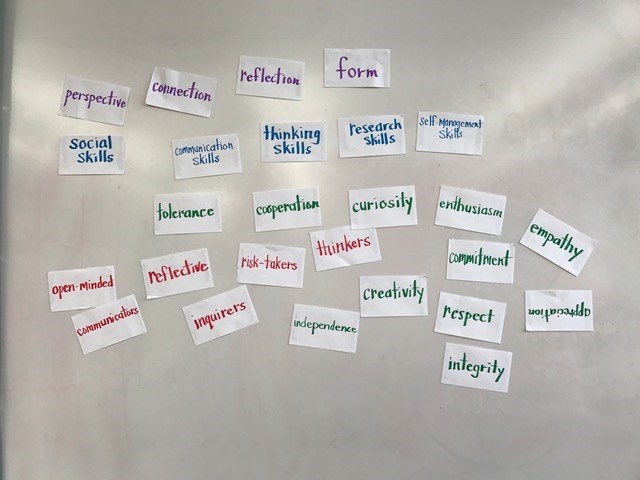 perspective
connection
reflection
form
social
skills
communication
skills
thinking
skills
research
skills
self-management
skills
tolerance
cooperation
curiosity
enthusiasm
empathy
open-minded
reflective
risk-takers
thinkers
commitment
communicators
inquirers
independence
creativity
respect
appreciation
integrity